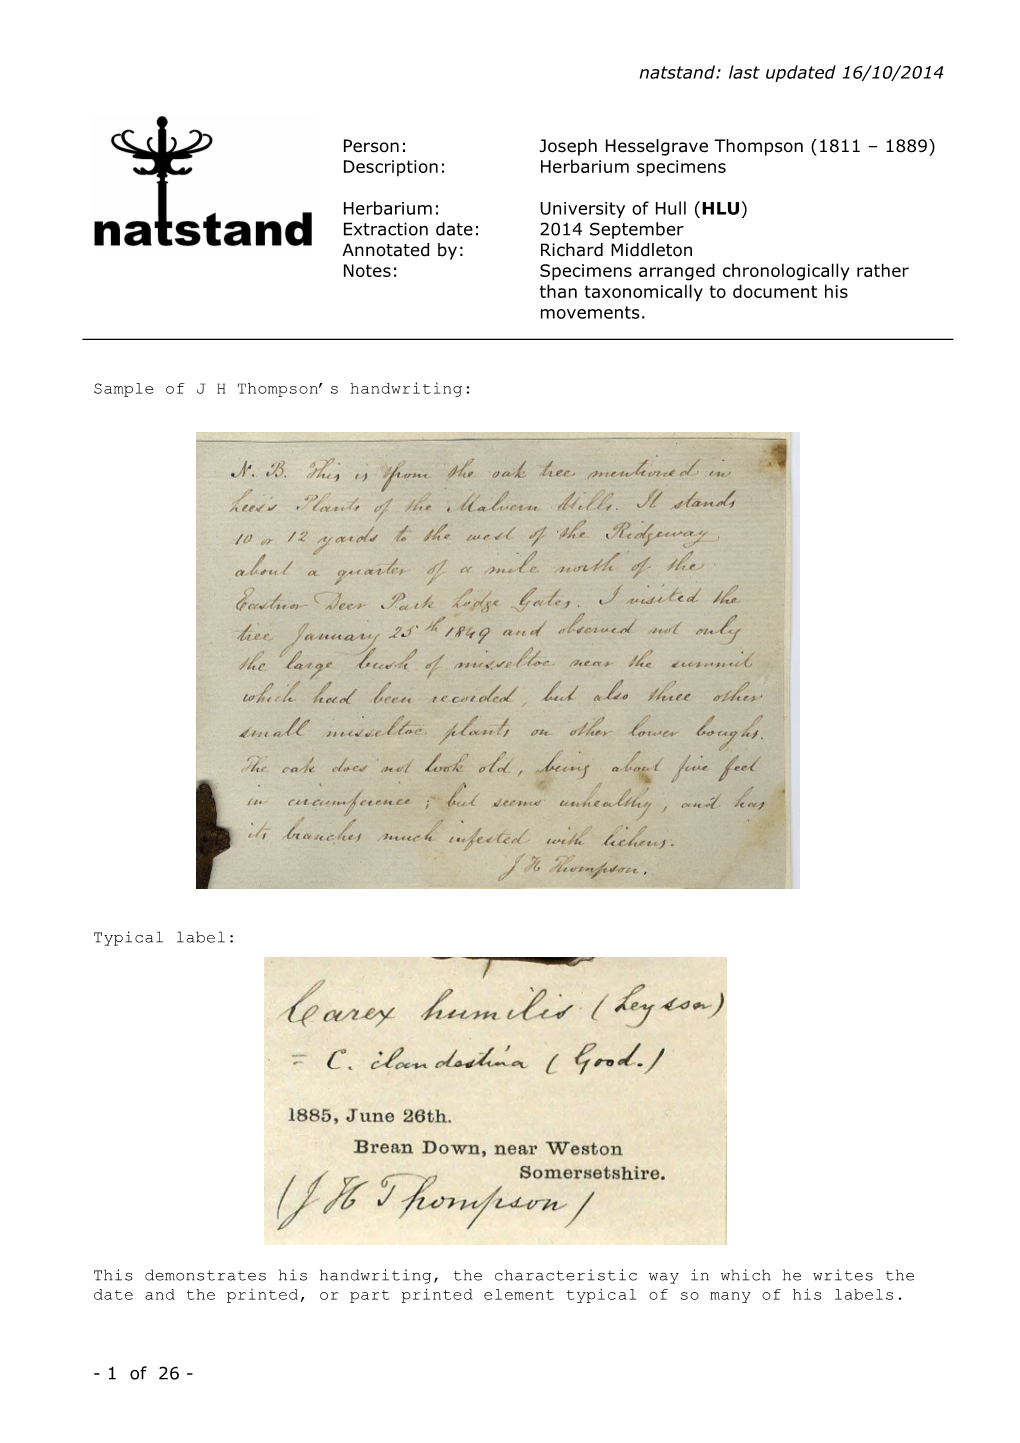 natstand: last updated 16/10/2014
natstand
Person: Joseph Hesselgrave Thompson (1811 – 1889)
Description: Herbarium specimens
Herbarium: University of Hull (HLU)
Extraction date: 2014 September
Annotated by: Richard Middleton
Notes: Specimens arranged chronologically rather
than taxonomically to document his
movements.
Sample of J H Thompson’s handwriting:
N. B. This is from the oak tree mentioned in
Lees's Plants of the Malvern Hills. It stands
10 or 12 yards to the west of the Ridgeway
about a quarter of a mile north of the
Eastnor Deer Park Lodge Gates. I visited the
tree January 25th 1849 and observed not only
the large bush of misseltoe near the summit
which had been recorded, but also three other
small misseltoe plants on other lower boughs.
The oak does not look old, being about five feet
in circumference; but seems unhealthy, and has
its branches much infested with lichens.
J H Thompson.
Typical label:
Carex humilis (Leysser)
= C. clandestina (Good.)
1885, June 26th.
Brean Down, near Weston
Somersetshire.
(J H Thompson)
This demonstrates his handwriting, the characteristic way in which he writes the
date and the printed, or part printed element typical of so many of his labels.
- 1 of 26 -